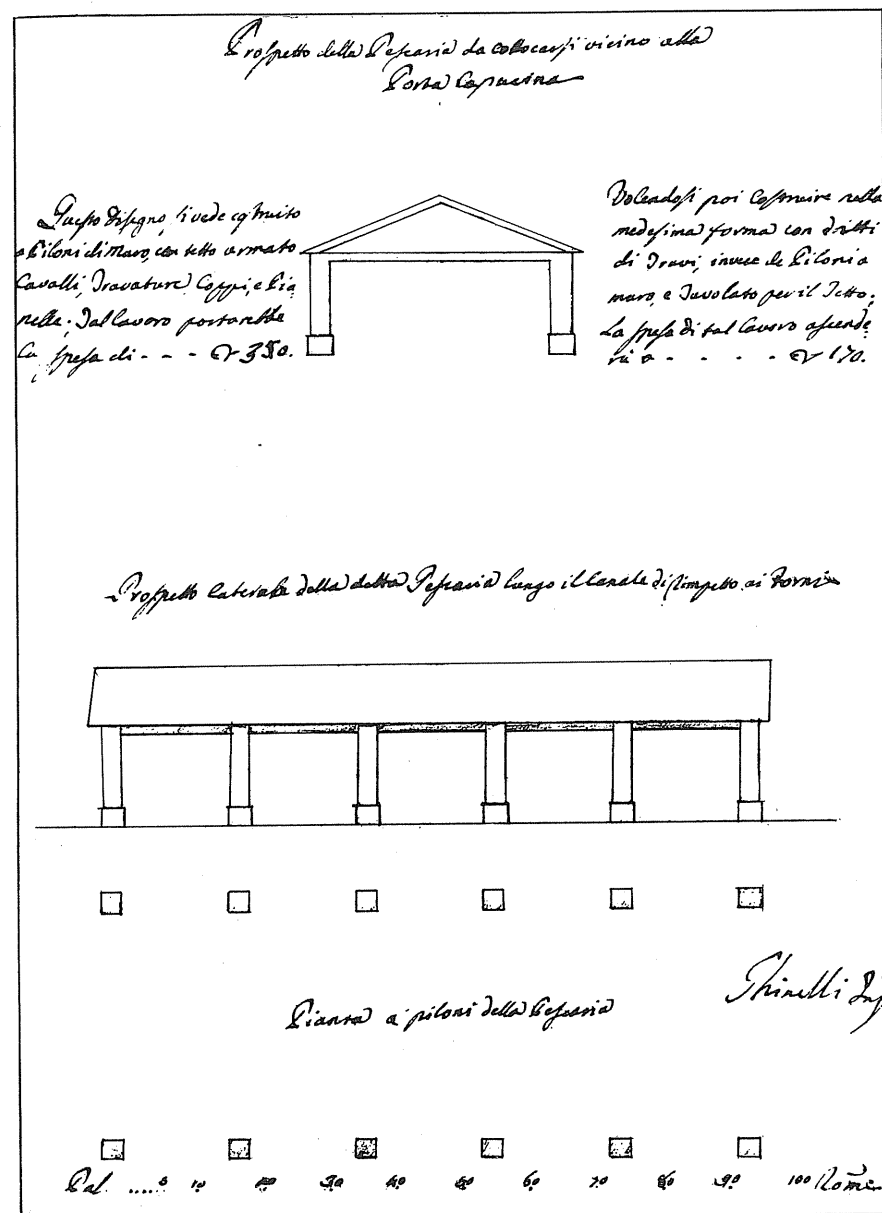 Prospetto della Pescaria da collocarsi vicino alla
Porta Capucina
Questo disegno, si vede costruito
a Piloni di muro, con tetto armato
Cavalli, Travature, Coppi, e Pia
nelle; Tal lavoro portarebbe
la spesa di - - -
Volendosi poi Costruire nella
medesima forma con dritti
di Travi, invece de Piloni a
muro, e Tavolato per il Tetto;
La spesa di tal lavoro ascende
rà a - - - - 170.
Prospetto laterale della detta Pescaria lungo il Canale di rimpetto ai Forni
Pianta a piloni della Pescaria
Ghinelli
Pal. ..... 5 10 20 30 40 50 60 70 80 90 100 Rom: